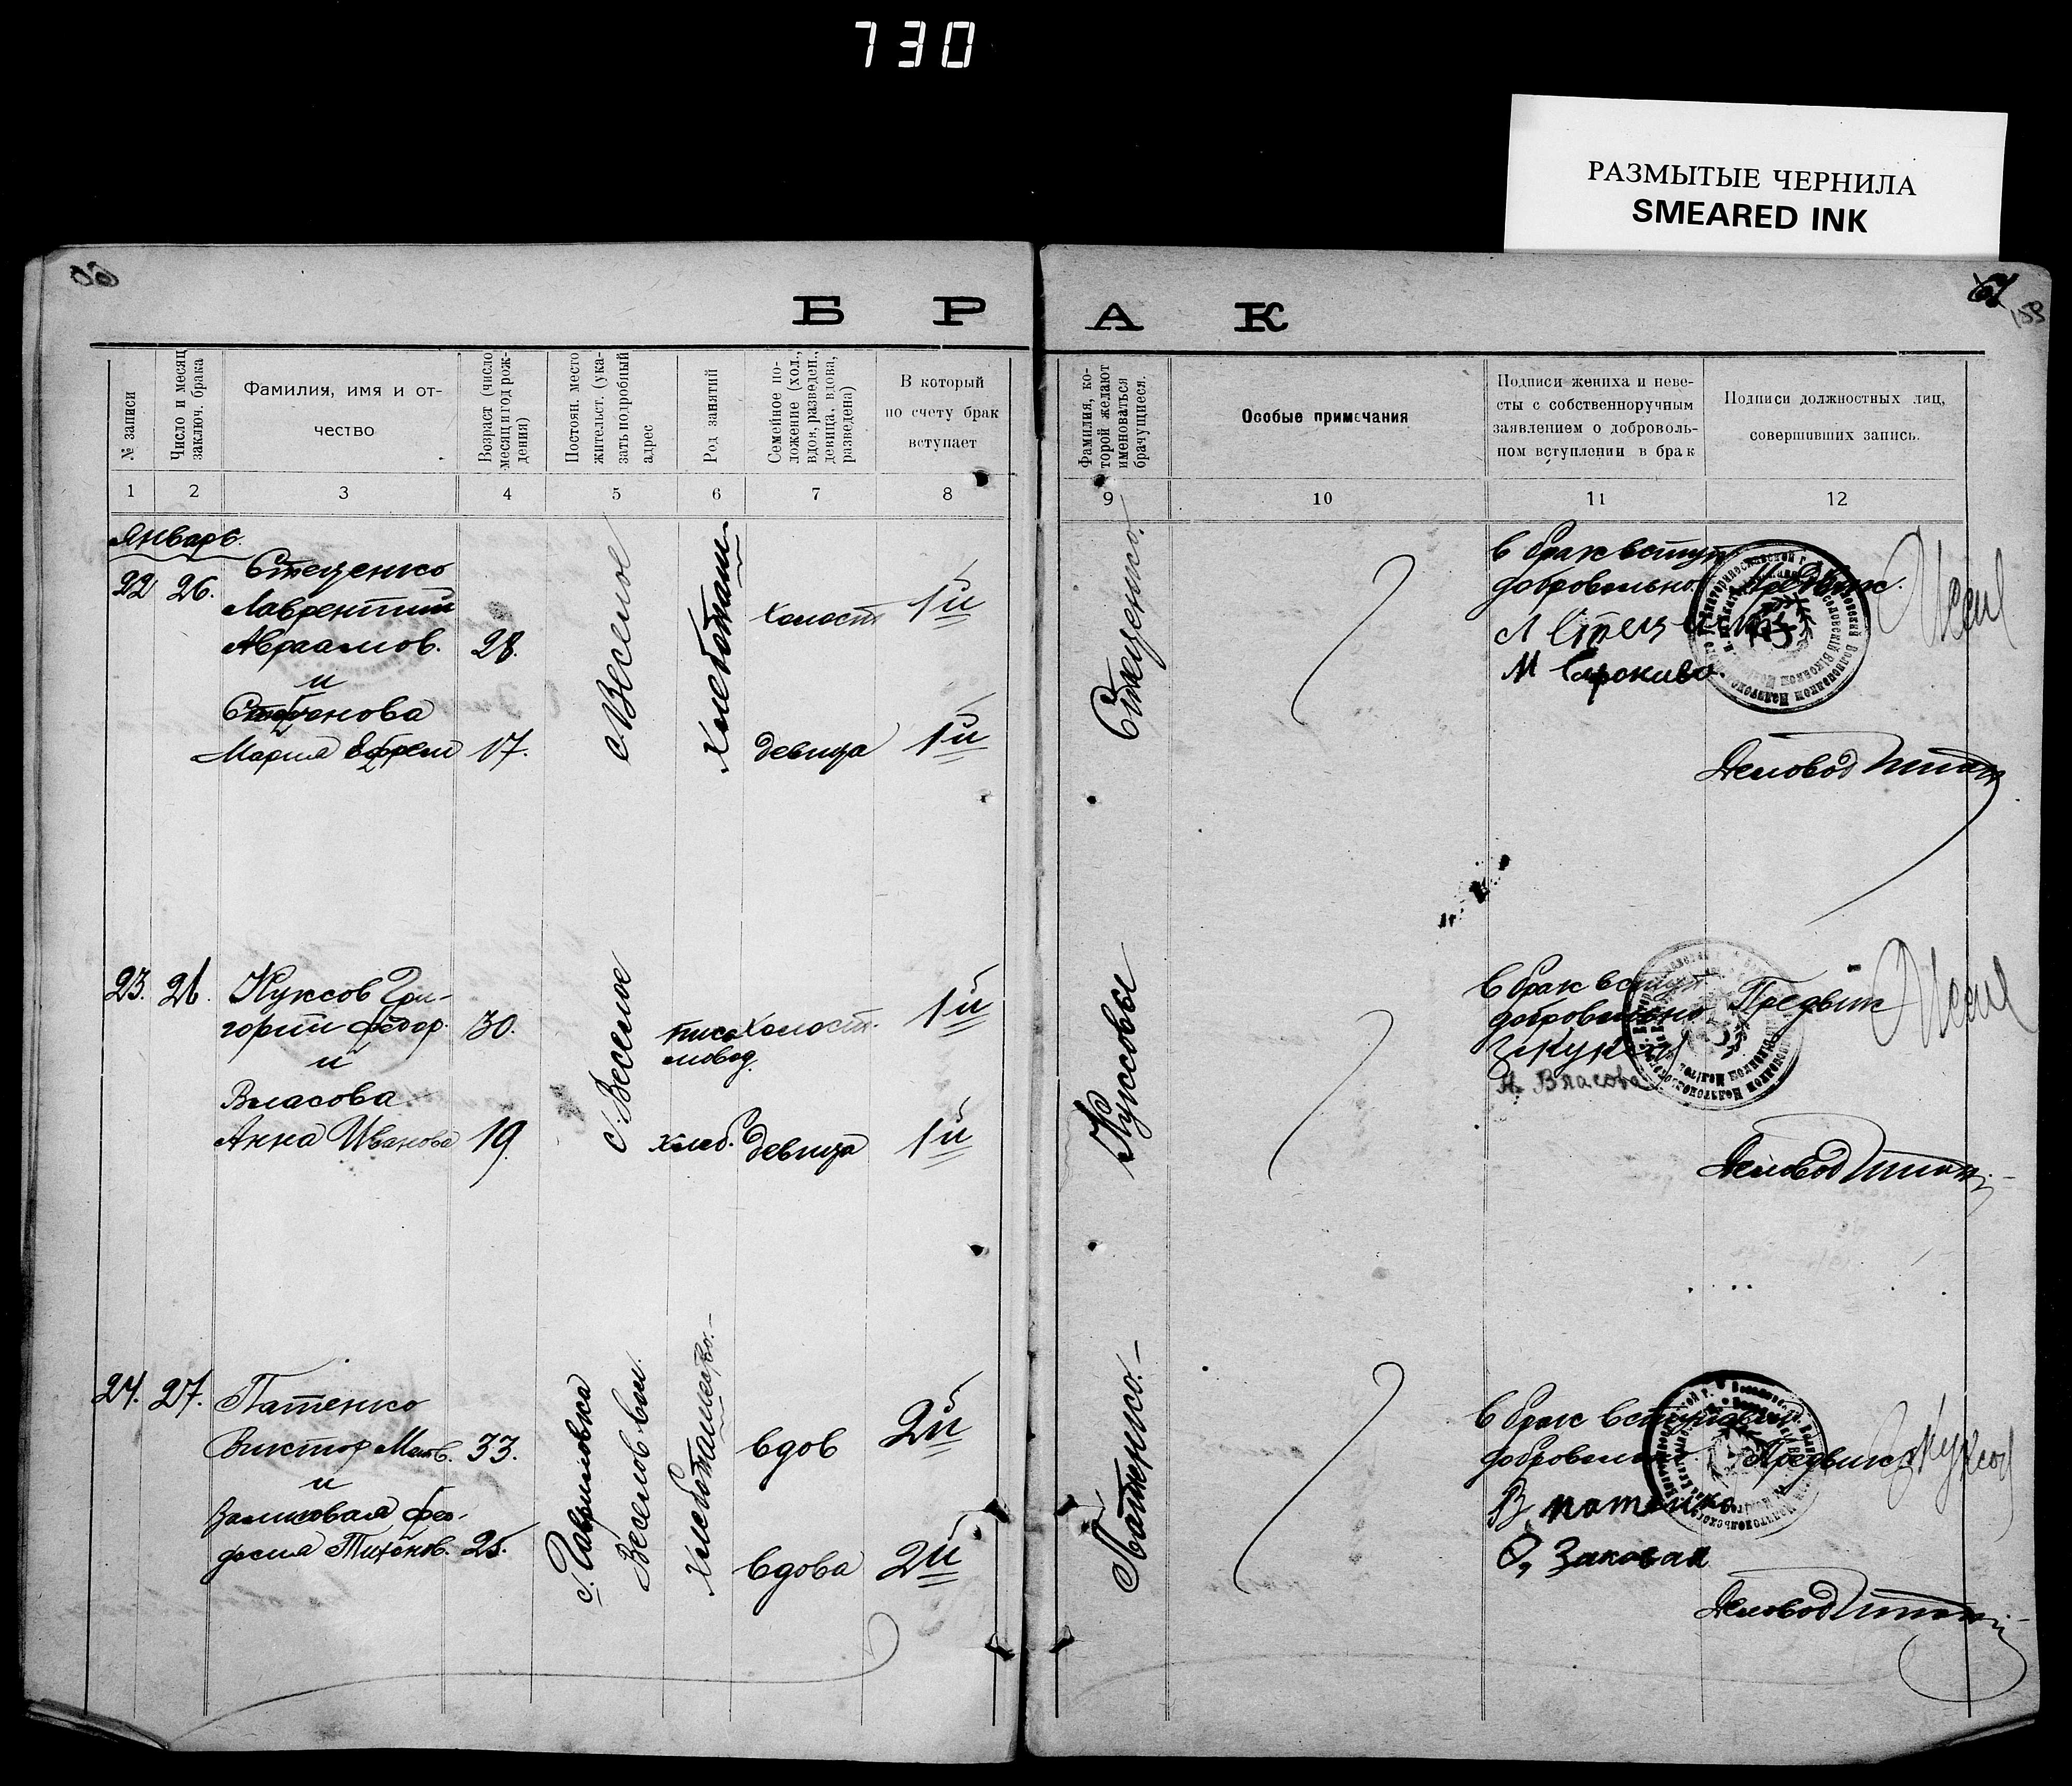 730
РАЗМЫТЫЕ ЧЕРНИЛА
SMEARED INK
60
61
БРАК
№ записи
Число и месяц
заключ. брака
Фамилия, имя и от-
чество
Возраст (число
месяц и год рож-
дения)
Постоян. место
жительст. (ука-
зать подробный
адрес
Род занятий
Семейное по-
ложение (хол.,
вдов, разведен.,
девица, вдова,
разведена)
В который
по счету брак
вступает
Фамилия, ко-
торой желают
именоваться
брачущиеся.
Особые примечания
Подписи жениха и неве-
сты с собственноручным
заявлением о доброволь-
ном вступлении в брак
Подписи должностных лиц,
совершивших запись.
1 2 3 4 5 6 7 8 9 10 11 12
Январь.
22 26.
Стеценко
Лаврентий
Авраамов. 28.
и
Стефанова
Мария Ефрем 17.
с Веселое
Хлебопаш
холост 1й
девица 1й
Стеценко.
В брак вступ
добровольно
Предвик.
Деловод
23. 26.
Куксов Гри-
горий Федор. 30.
и
Власова
Анна Иванова 19.
с. Веселое
письмовод.
хлеб.
холост. 1й
девица 1й
Куксовы
В брак вступ
добровольно
Предвик
А. Власова
Деловод
24. 27.
Патенко
Виктор 33.
и
Фео-
досия Тихонов. 25.
с. Гавриловка
Веселов. вол.
Хлебопашество.
вдов 2й
вдова 2й
Патенко.
В брак вступаем
добровольно
Предвик
В Патенко
Деловод